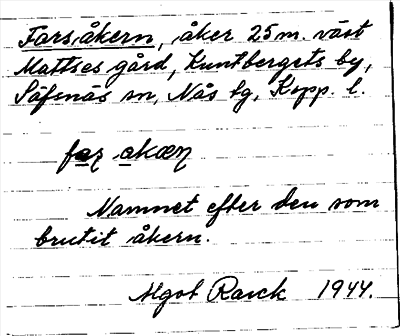 Farsåkern, åker 25 m. väst
Mattses gård, Kuntbergets by,
Säfsnäs sn, Nås tg, Kopp. l.
Namnet efter den som
brutit åkern.
Algot Rask 1944.